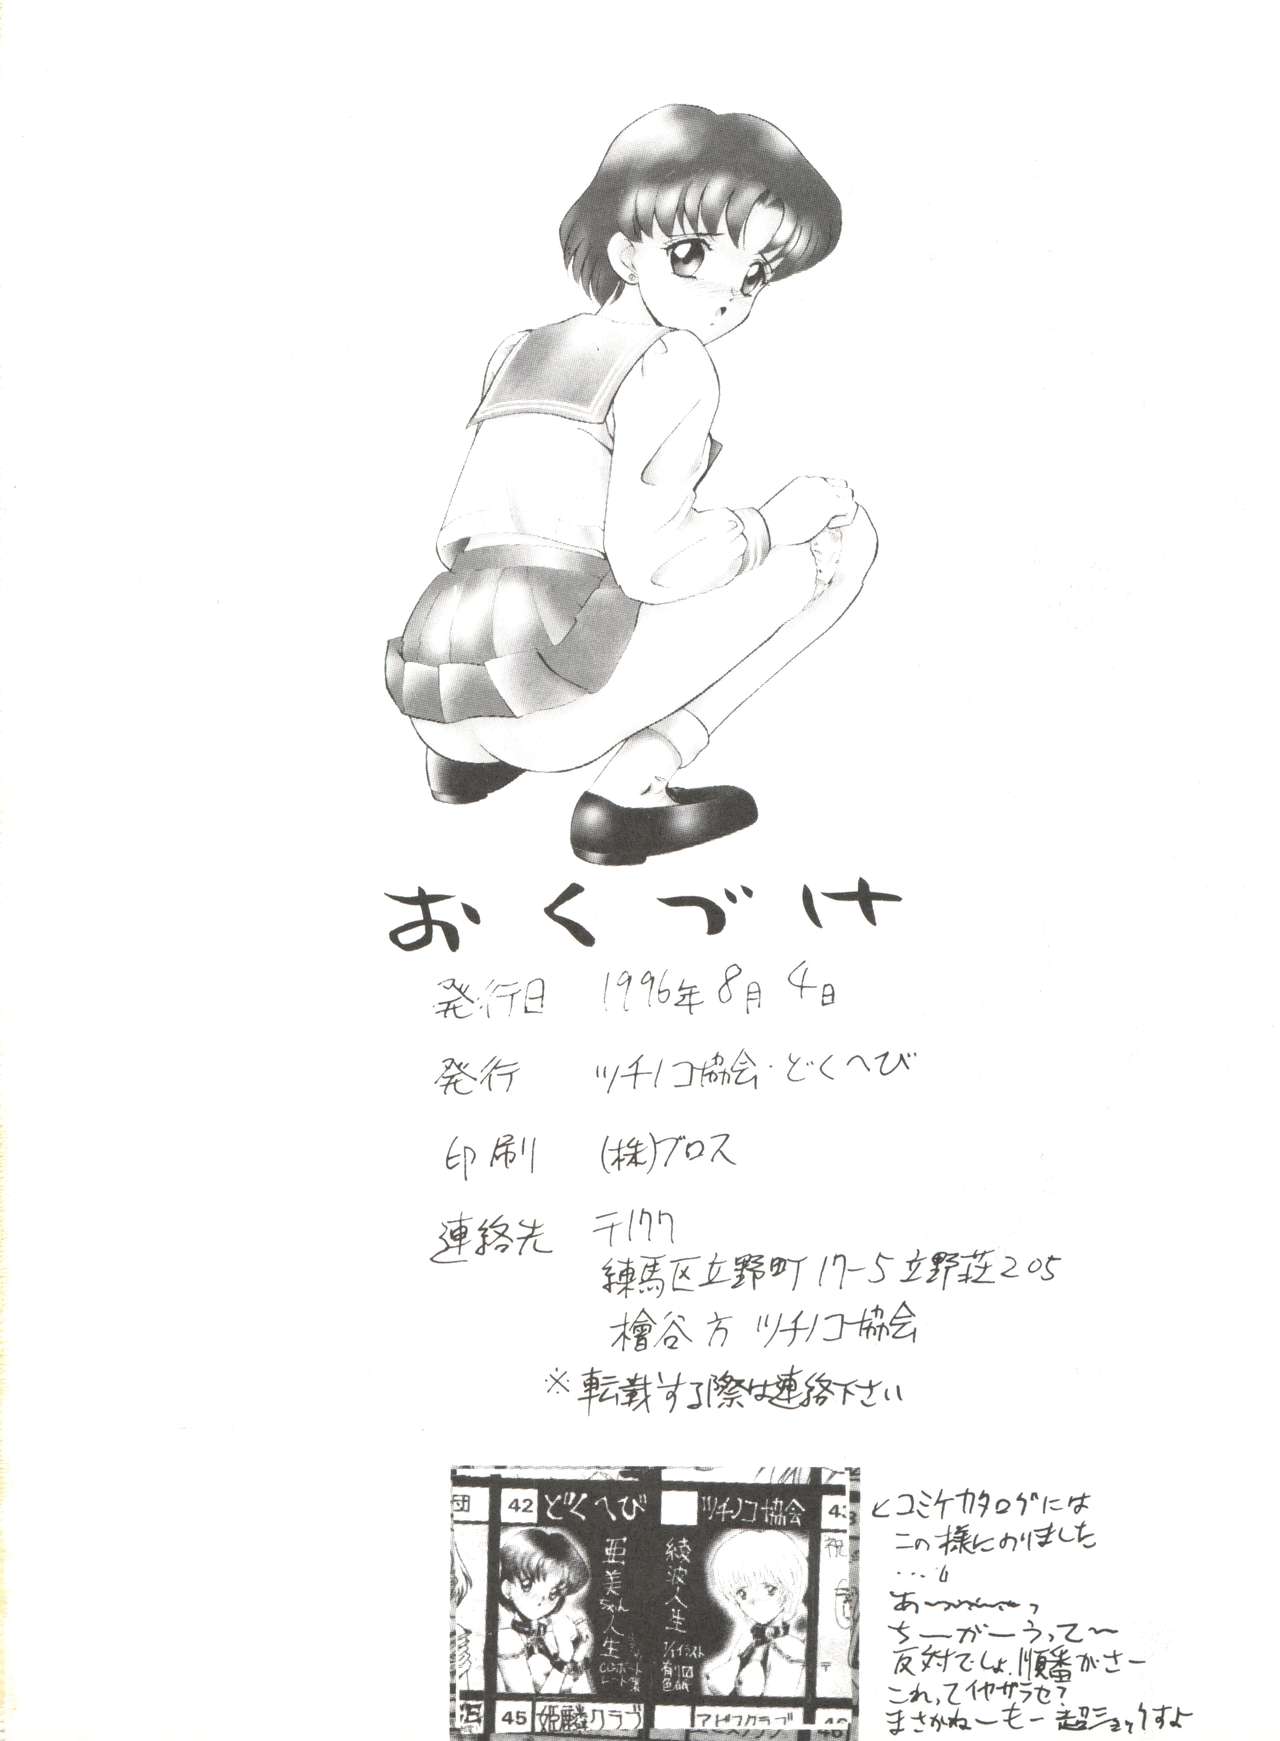 おくづけ
発行日 1996年8月4日
発行 ツチノコ協会・どくへび
印刷 (株)ブロス
連絡先 〒177
練馬区立野町17-5立野荘205
檜谷方 ツチノコ協会
※転載する際は連絡下さい
団
42 どくへび
亜美ちゃん人生
ツチノコ協会
綾波人生
祝
45 姫麟クラブ
コミケカタログには
この様にのりました
ちーがーうって〜
反対でしょ、順番がさー
これってイヤガラセ?
まさかねーもー超ショックすよ